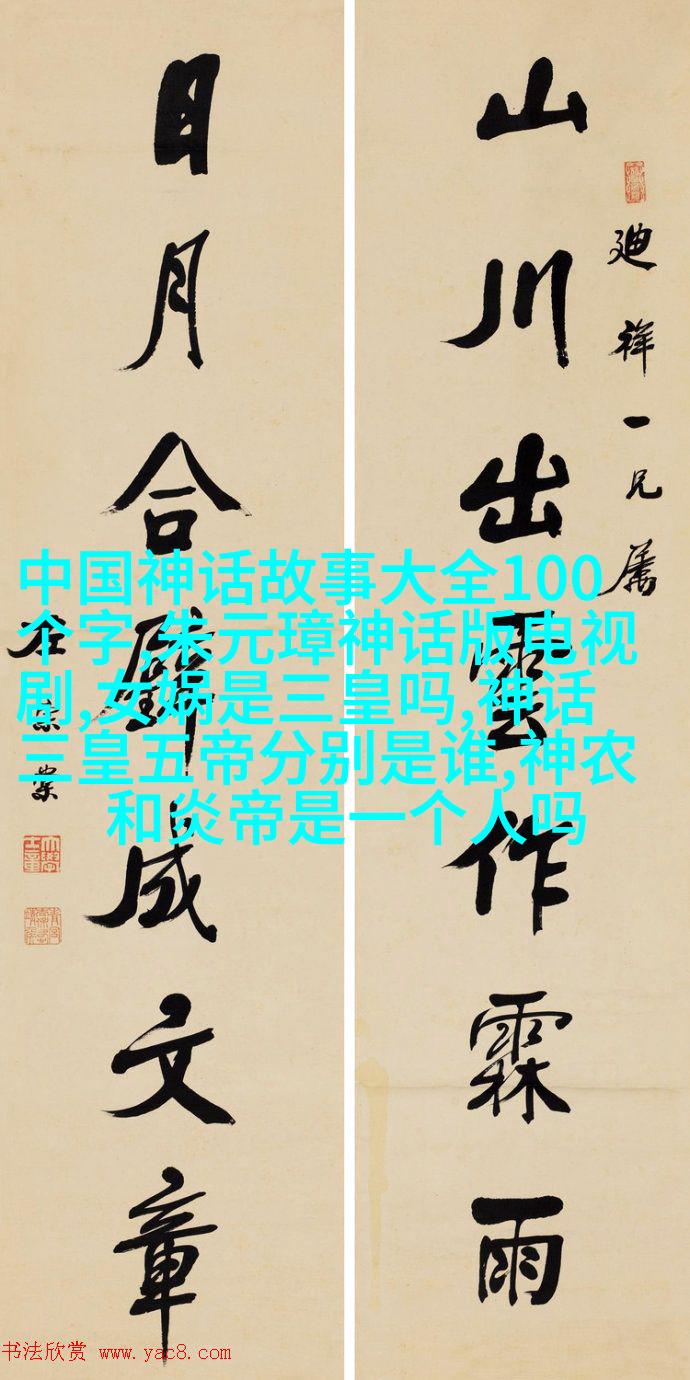 廸祥一兄属
山川出雲作霖雨
日月合璧成文章
左宗棠
中国神话故事大全100
个字,朱元璋神话版电视
剧,女娲是三皇吗,神话
三皇五帝分别是谁,神农
和炎帝是一个人吗
书法欣赏 www.yac8.com